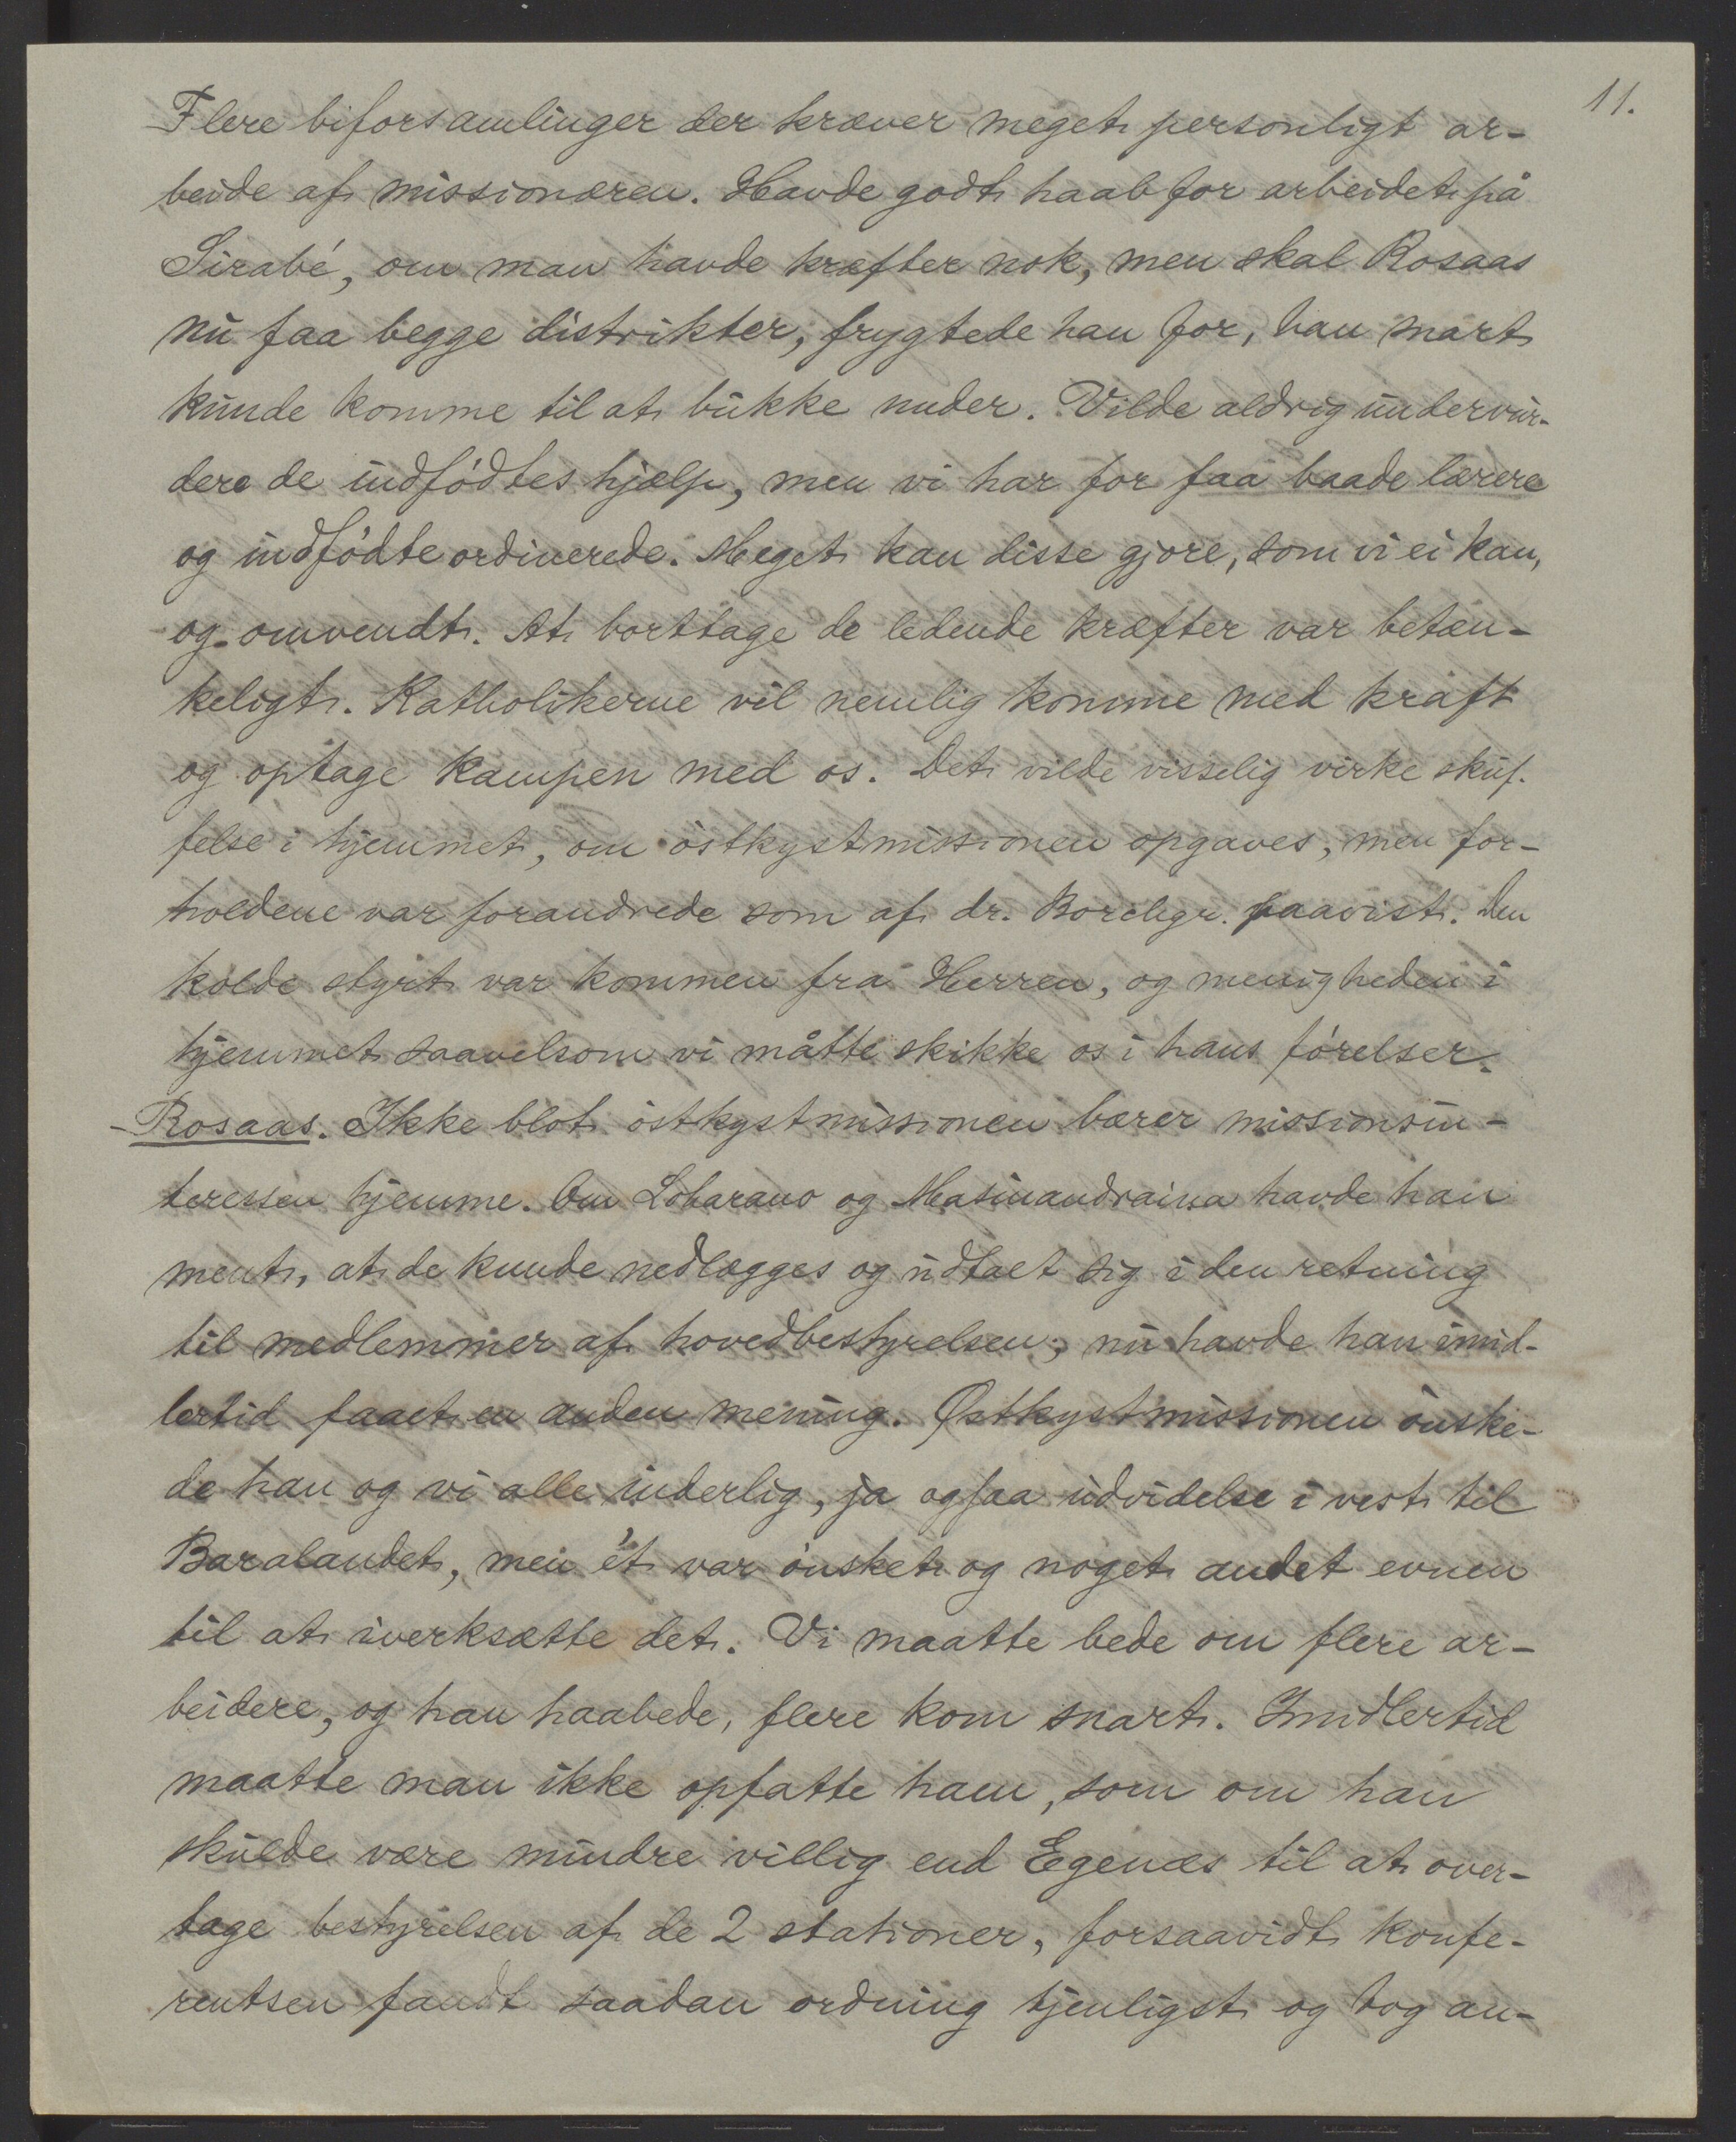 11.
Flere biforsamlinger der kræver meget personligt ar-
beide af missionæren. Havde godt haab for arbeidet på
Sirabé, om man havde kræfter nok, men skal Rosaas
nu faa begge distrikter, frygtede han for, han snart
kunde komme til at bukke under. Vilde aldrig undervur-
dere de indfødtes hjælp, men vi har for faa baade lærere
og indfødte ordinerede. Meget kan disse gjøre, som vi ei kan,
og omvendt. At borttage de ledende kræfter var betæn-
keligt. Katholikerne vil nemlig komme med kraft
og optage kampen med os. Det vilde visselig virke skuf-
felse i hjemmet, om østkystmissionen opgaves, men for-
holdene var forandrede som af dr. Borchgr. paavist. Den
kolde styrt var kommen fra Herren, og menigheden i
hjemmet saavelsom vi måtte skikke os i hans førelser.
Rosaas. Ikke blot østkystmissionen bærer missionsin-
teressen hjemme. Om Loharano og Masinandraina havde han
ment, at de kunde nedlægges og udtalt sig i den retning
til medlemmer af hovedbestyrelsen; nu havde han imid-
lertid faaet en anden mening. Østkystmissionen ønske-
de han og vi alle inderlig, ja ogsaa udvidelse i vest til
Baralandet, men ét var ønsket og noget andet evnen
til at iverksætte det. Vi maatte bede om flere ar-
beidere, og han haabede, flere kom snart. Imidlertid
maatte man ikke opfatte ham, som om han
skulde være mindre villig end Egenæs til at over-
tage bestyrelsen af de 2 stationer, forsaavidt konfe-
rentsen fandt saadan ordning tjenligst og tog an-